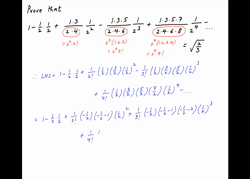 Prove that
1 - 1/2 · 1/2 + (1·3)/(2·4) · 1/2² - (1·3·5)/(2·4·6) · 1/2³ + (1·3·5·7)/(2·4·6·8) · 1/2⁴ - ...
= √(2/3)
∴ LHS = 1 - 1/2 · 1/2 + 1/2! (1/2)(3/2)(1/2)² - 1/3! (1/2)(3/2)(5/2)(1/2)³
+ 1/4! (1/2)(3/2)(5/2)(7/2)(1/2)⁴ - ...
= 1 - 1/2 · 1/2 + 1/2! (-1/2)(-1/2-1)(1/2)² + 1/3! (-1/2)(-1/2-1)(-1/2-2)(1/2)³
+ 1/4! (